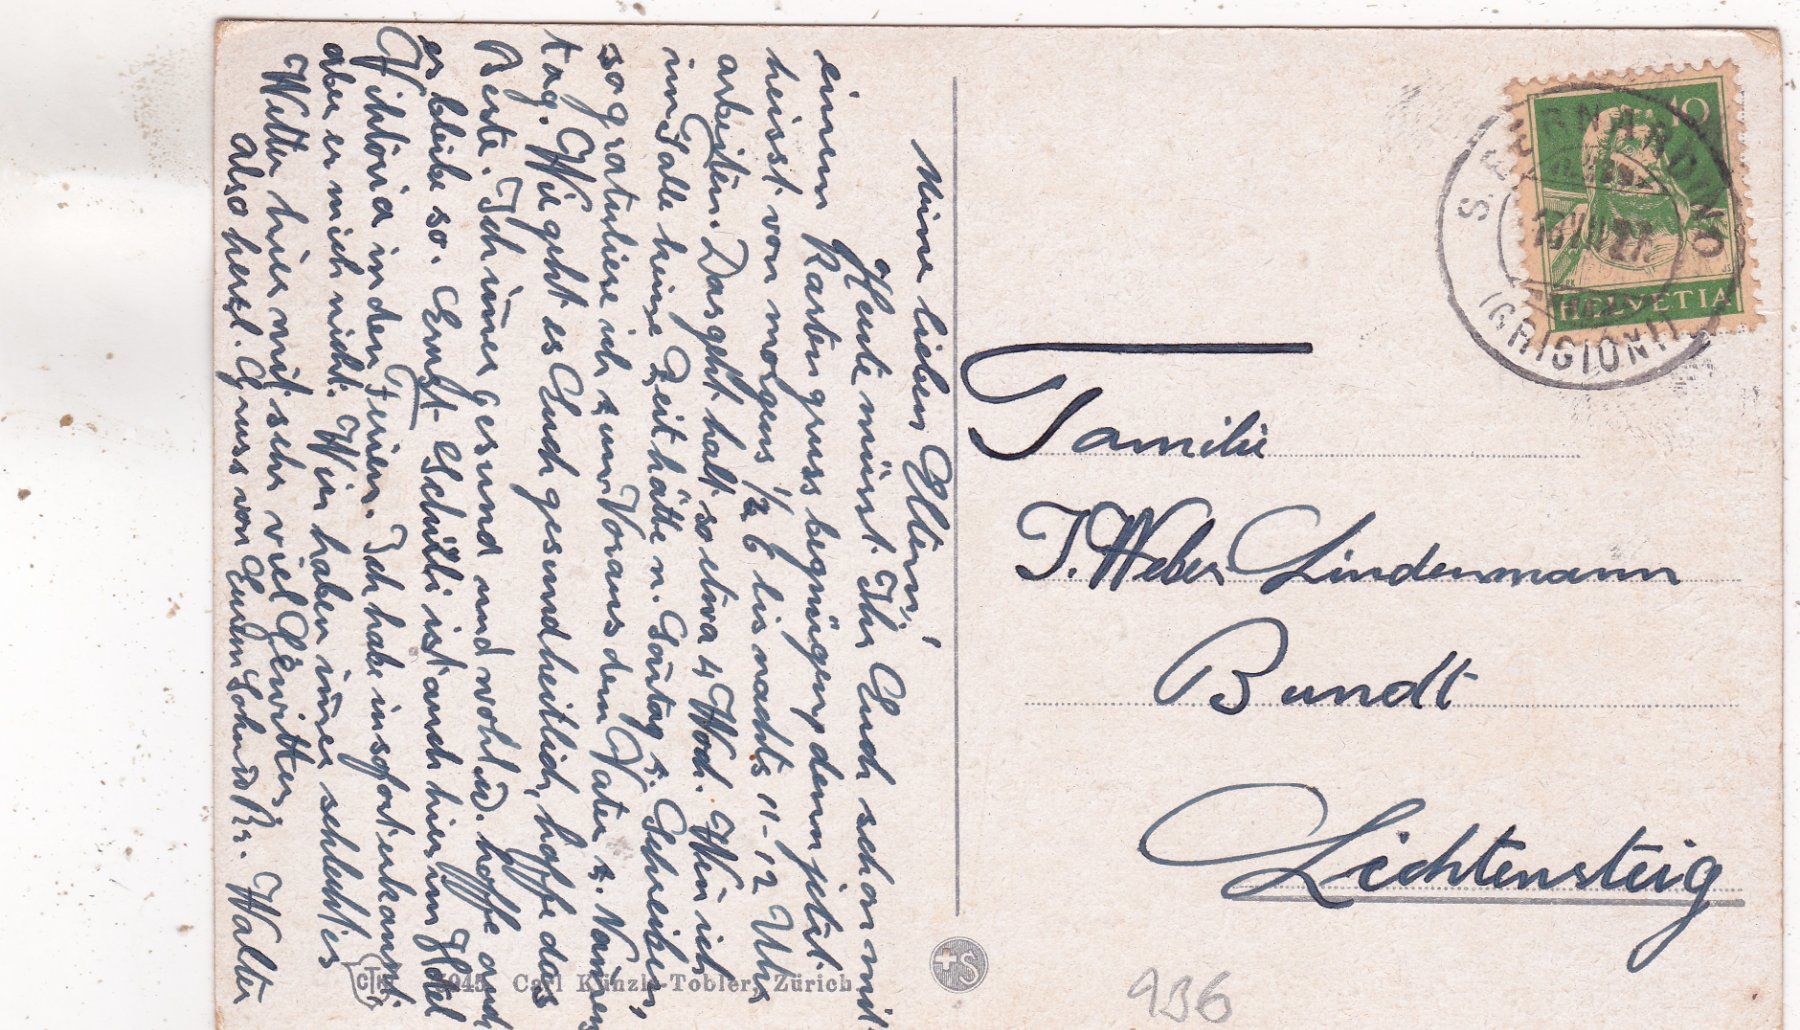 Meine lieben Eltern!
Heute müsst Ihr Euch schon mit
einem Kartengruss begnügen, denn jetzt
heisst von morgens 1/2 6 bis nachts 11-12 Uhr
arbeiten. Das geht halt so etwa 4 Woch. Wen ich
im Falle keine Zeit hätte n. Sontag z. Schreiben,
so gratuliere ich zum Voraus dem Vater z. Namens
tag. Wie geht es Euch gesundheitlich, hoffe das
Beste. Ich imer gesund und wohl u. hoffe auch
es bleibe so. Ernst ist auch hier im Hotel
Viktoria in den Ferien. Ich habe in sofort erkannt
aber er mich nicht. Wir haben imer schlechtes
Wetter hier mit sehr viel Gewitter,
also herzl. Gruss von Eurem Sohn u Br. Walter
Familie
J. Weber Lindenmann
Bundt
Lichtensteig
10
HELVETIA
S. BERNARDINO
(GRIGIONI)
Carl Künzli-Tobler, Zürich.
936